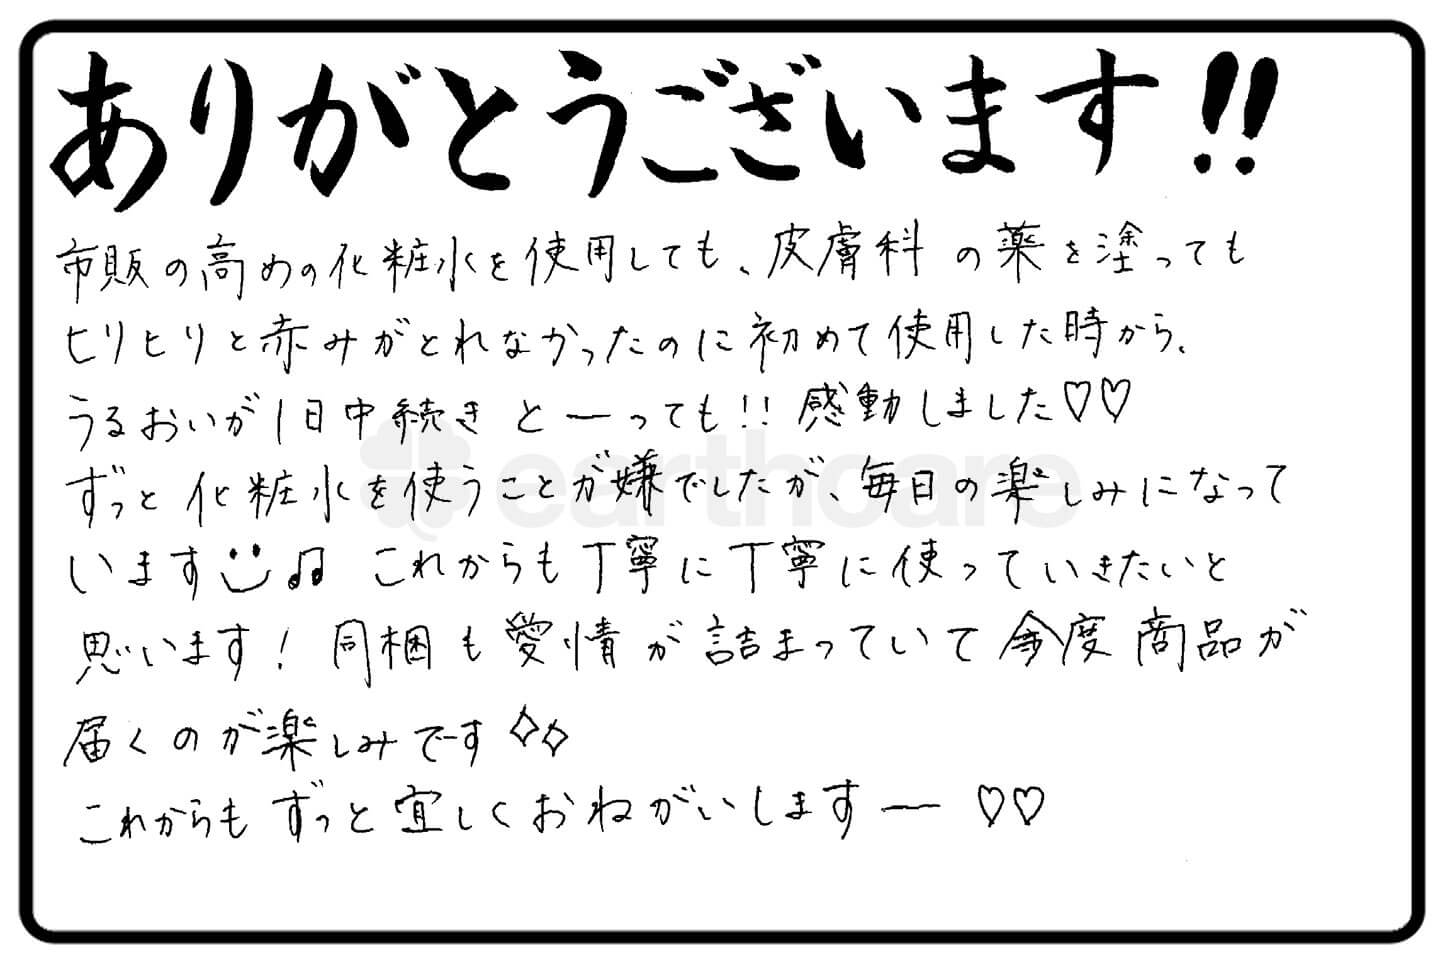 ありがとうございます!!
市販の高めの化粧水を使用しても、皮膚科の薬を塗っても
ヒリヒリと赤みがとれなかったのに初めて使用した時から、
うるおいが1日中続きとーっても!!感動しました♡♡
ずっと化粧水を使うことが嫌でしたが、毎日の楽しみになって
います☺♫ これからも丁寧に丁寧に使っていきたいと
思います! 同梱も愛情が詰まっていて今度商品が
届くのが楽しみです✧✧
これからもずっと宜しくおねがいしますー♡♡
earthcare